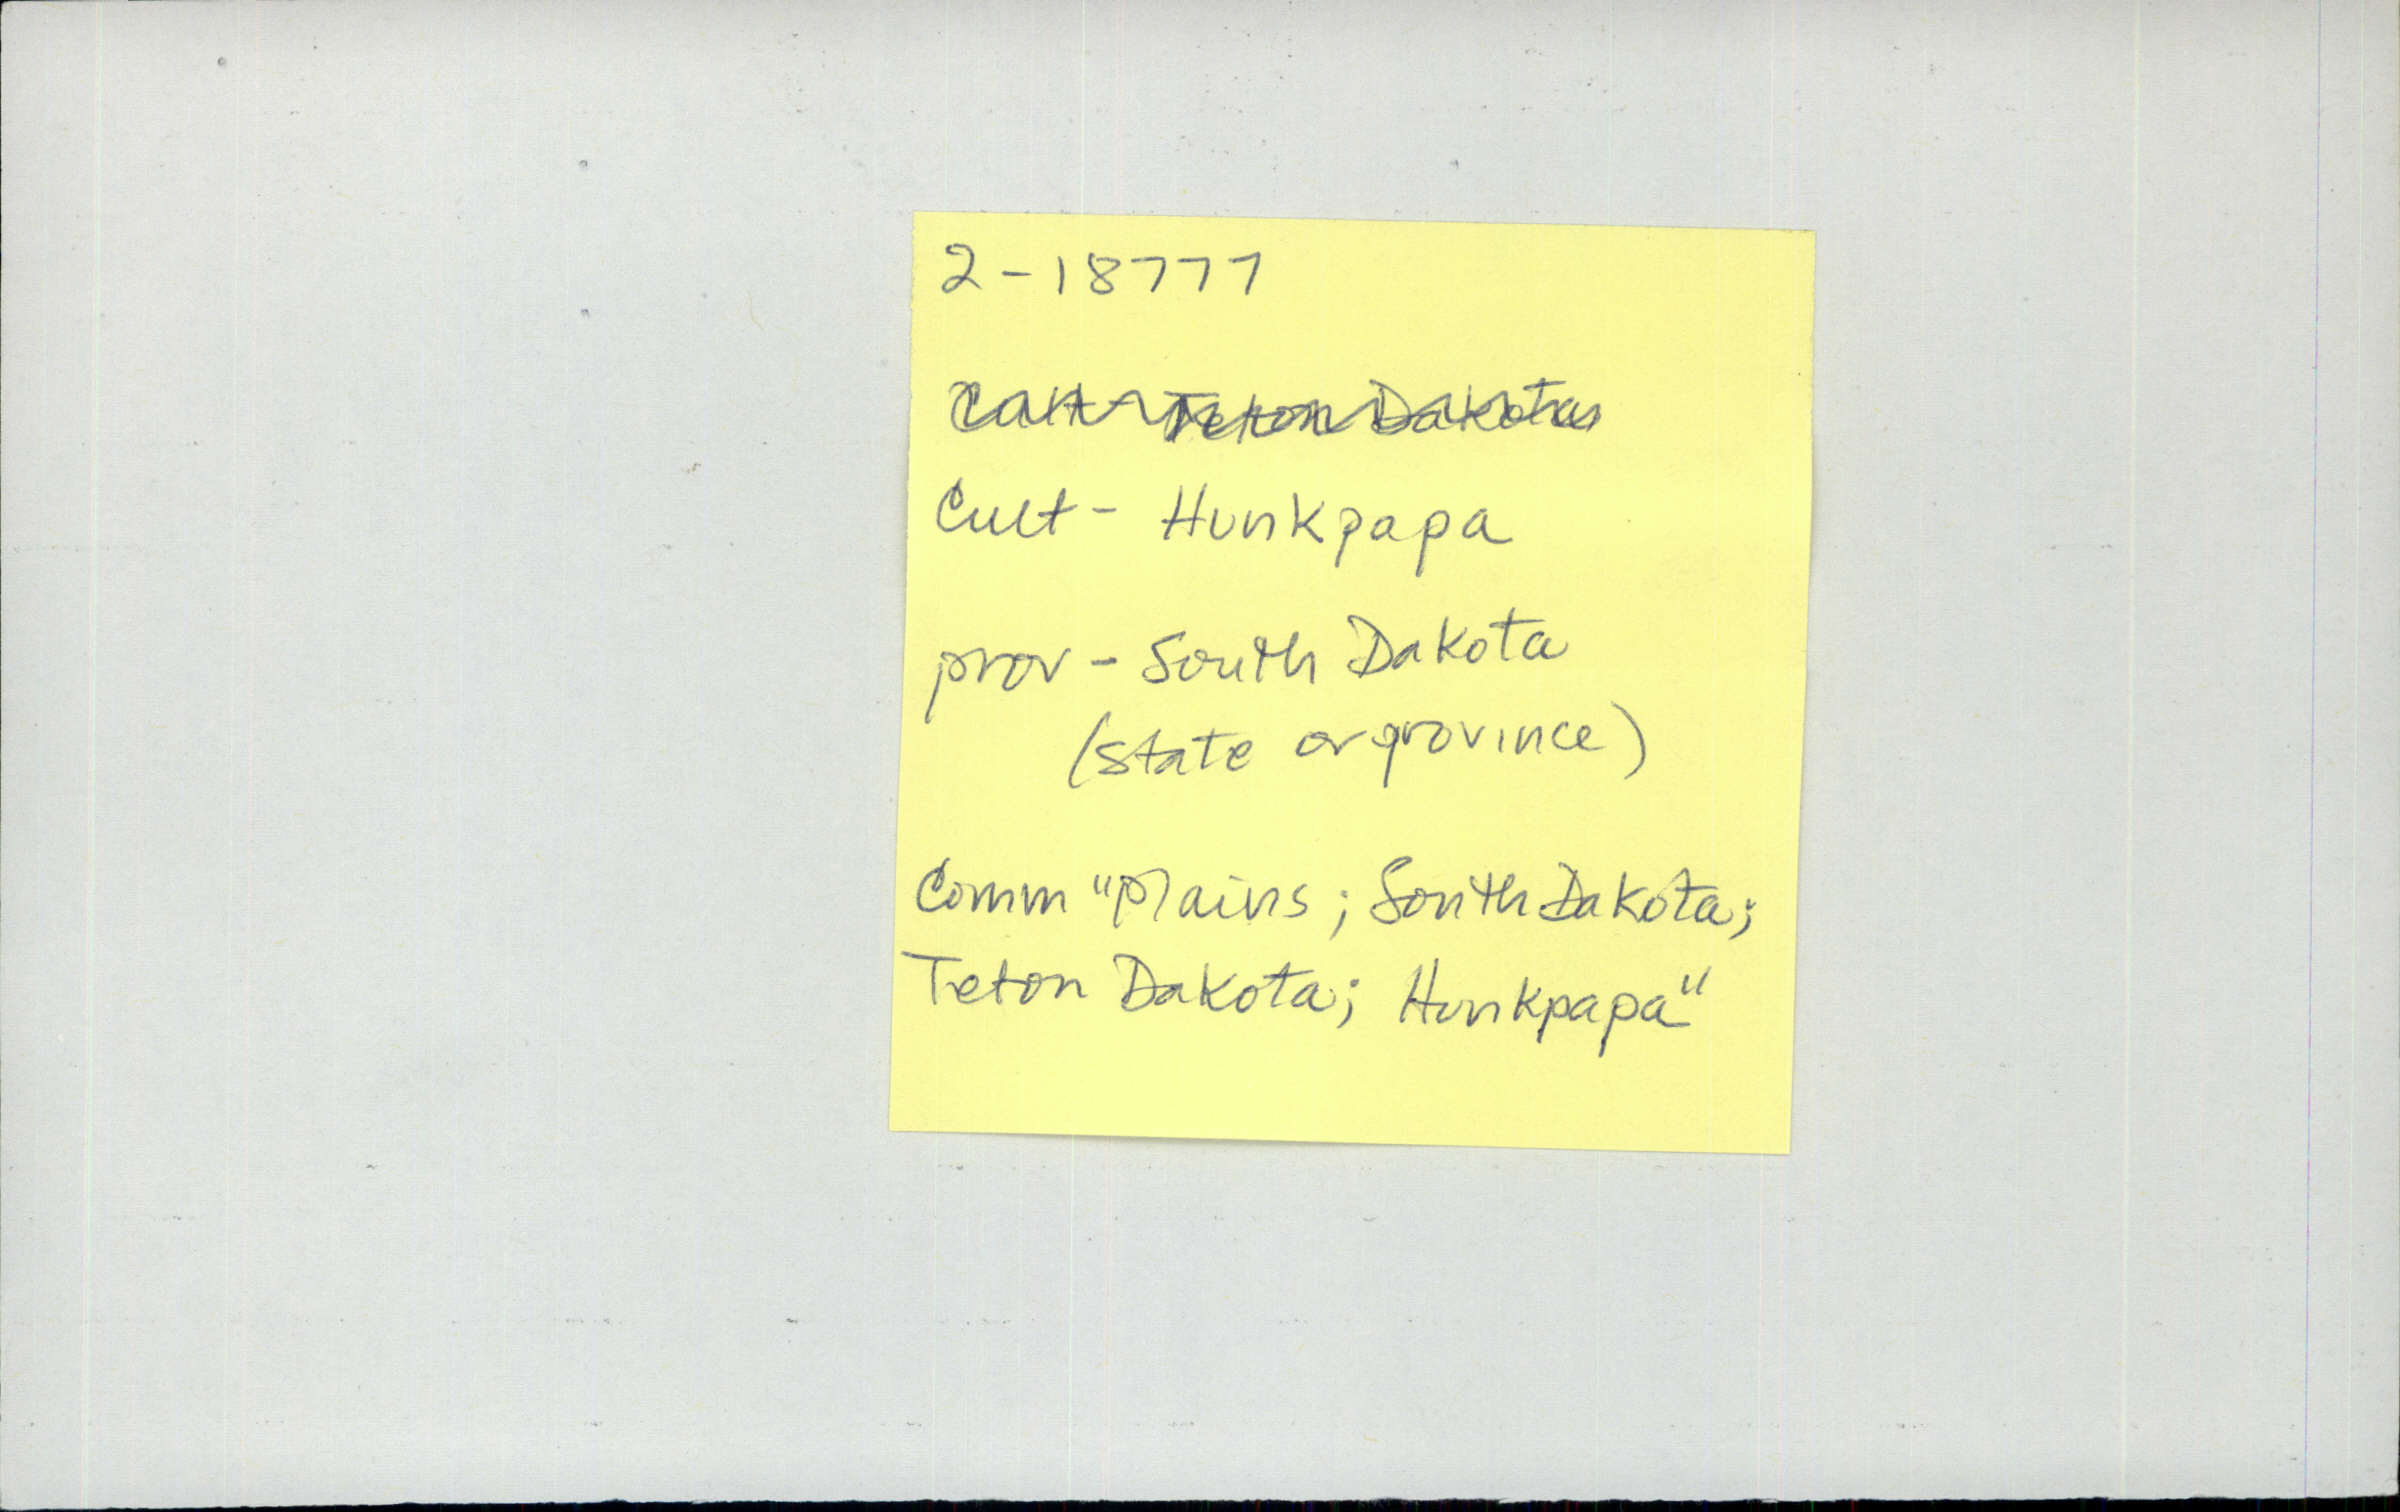 2-18777
Cult - Teton Dakota
Cult - Hunkpapa
prov - South Dakota
(state or province)
Comm "Plains; South Dakota;
Teton Dakota; Hunkpapa"